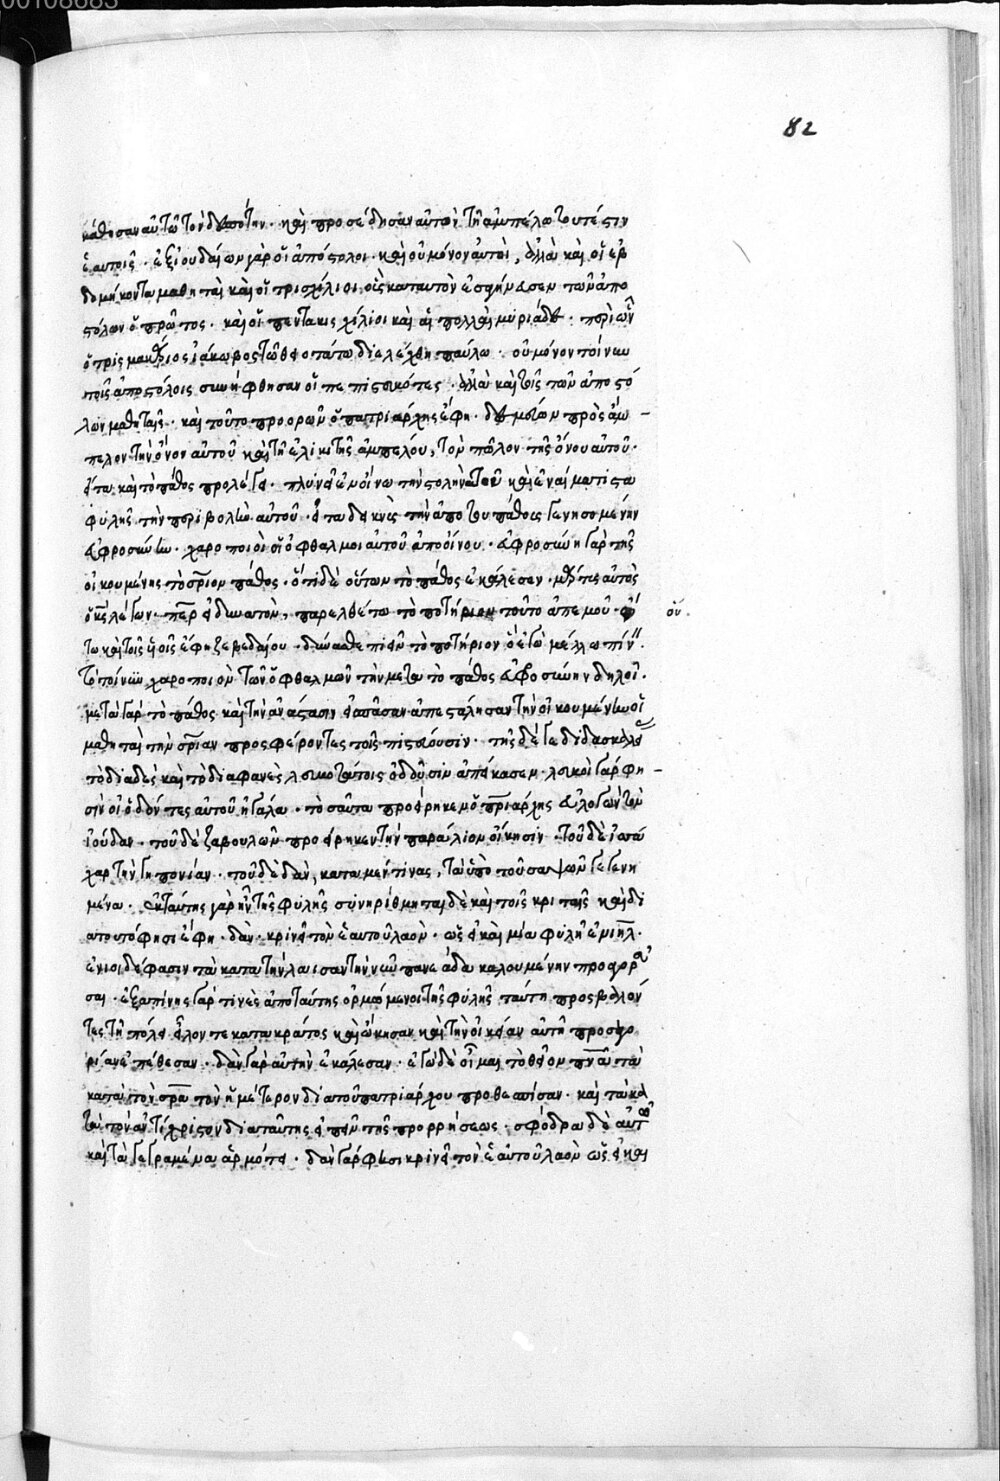 82
κάθισαν αὐτῶ τὸν δεσπότην. καὶ προσέδησαν αὐτὸν τῆ ἀμπέλω τουτέστιν
ἑαυτοῖς. ἐξ ἰουδαίων γὰρ οἱ ἀπόστολοι. καὶ οὐ μόνον αὐτοὶ, ἀλλὰ καὶ οἱ ἑβ
δομήκοντα μαθηταὶ καὶ οἱ τρισχίλιοι οὓς κατ αυτὸν ἐσαγήνευσεν τῶν ἀπο
στόλων ὁ πρῶτος. καὶ οἱ πεντακισχίλιοι καὶ αἱ πολλαὶ μυριάδες. περὶ ὧν
ὁ τρὶς μακάριος ἰάκωβος τῶ θειοτάτω διελέχθη παύλω. οὐ μόνον τοίνυν
τοῖς ἀποστόλοις συνήφθησαν οἱ πεπιστευκότες. ἀλλὰ καὶ τοῖς τῶν ἀποστό
λων μαθηταῖς. καὶ τοῦτο προορῶν ὁ πατριάρχης ἔφη. δεσμεύων πρὸς ἄμ
πελον τὴν ὄνον αὐτοῦ καὶ τῆ ἕλικι τῆς ἀμπέλου, τὸν πῶλον τῆς ὄνου αὐτοῦ.
εἶτα καὶ τὸ πάθος προλέγει. πλυνεῖ ἐν οἴνω τὴν στολὴν αὐτοῦ καὶ ἐν αἵματι στα
φυλῆς τὴν περιβολὴν αὐτοῦ. εἶτα δεικνὺς τὴν ἀπὸ του πάθους γενησομένην
εὐφροσύνην. χαροποιοὶ οἱ ὀφθαλμοι αὐτοῦ ἀπὸ οἴνου. εὐφροσύνη γὰρ τῆς
οἰκουμένης τὸ σ̅ρ̅ιον πάθος. ὅτι δὲ οὕτων τὸ πάθος ἐκάλεσεν.
παρελθέτω τὸ ποτήριον τοῦτο ἀπ εμοῦ.
οὐ.
τω καὶ τοῖς υἱοῖς ἔφη ζεβεδαίου. δύνασθε πιεῖν τὸ ποτήριον ὃ ἐγὼ μέλλω πίν
τοίνυν χαροποιὸν τῶν ὀφθαλμῶν τὴν μετα τὸ πάθος εὐφροσύνην δηλοῖ.
μετὰ γὰρ τὸ πάθος καὶ τὴν ἀνάστασιν εἰς πᾶσαν ἀπεστάλησαν τὴν οἰκουμένην οἱ
μαθηταὶ τὴν σ̅ρ̅ιαν προσφέροντες τοῖς πιστεύουσιν. τῆς δέ γε διδασκαλί
τὸ διαδὲς καὶ τὸ διαφανὲς λευκότητι τοῖς ὀδοῦσιν ἀπείκασεν. λευκοὶ γάρ φη
σὶν οἱ ὀδόντες αὐτοῦ ἢ γάλα. τοσαῦτα προείρηκεν ὁ πριάρχης εὐλογῶν τὸν
ἰούδαν. τοῦ δὲ ζαβουλὼν προείρηκεν τὴν παράλιον οἴκησιν. τοῦ δὲ ἰσσά
χαρ τὴν γηπονίαν. τοῦ δὲ δὰν, κατα μέν τινας, τὰ ὑπὸ τοῦ σαμψὼν γεγενη
μένα. ἐκ ταύτης γὰρ ἦν τῆς φυλῆς συνηρίθμηται δὲ καὶ τοῖς κριταῖς καὶ δι
ατουτό φησι ἔφη. δὰν κρινεῖ τὸν ἑαυτοῦ λαὸν. ὡσεὶ καὶ μία φυλὴ ἐν ιη̅λ̅.
ἔνιοι δέ φασιν τὰ κατα τὴν λαισαν τὴν νῦν πανεάδα καλουμένην προαγορεῦ
σαι. ἐξαπίνης γάρ τινὲς ἀπο ταύτης ὁρμώμενοι τῆς φυλῆς ταύτη προσβαλόν
τες τῆ πόλει εἷλον τε κατα κράτος καὶ ᾤκησαν καὶ τὴν οἰκείαν αὐτῆ προσηγο
ρίαν ἐπέθεσαν. δὰν γὰρ αὐτὴν ἐκάλεσαν. ἐγὼ δὲ οἶμαι τὸ θεῖον π̅ν̅α̅ τὰ
κατὰ τὸν σ̅ρ̅α τὸν ἡμέτερον διὰ τοῦ πατριάρχου προθεσπίσαν. καὶ τὰ κα
τὰ τὸν ἀντίχριστον διὰ ταύτης εἰπεῖν τῆς προρρήσεως. σφόδρα δὲ αὐτῶ
καὶ τὰ γεγραμένα ἁρμόττει. δὰν γάρ φησι κρινεῖ τὸν ἑαυτοῦ λαὸν ὡσεὶ καὶ